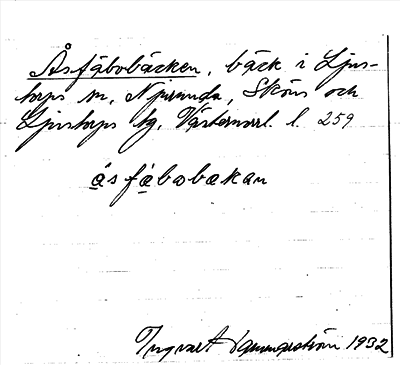 Åsfäbobäcken, bäck i Ljus-
torps sn, Njurunda, Sköns och
Ljustorps tg, Västernorrl. l. 259
åsfäbobäkan
Ingvart 1932